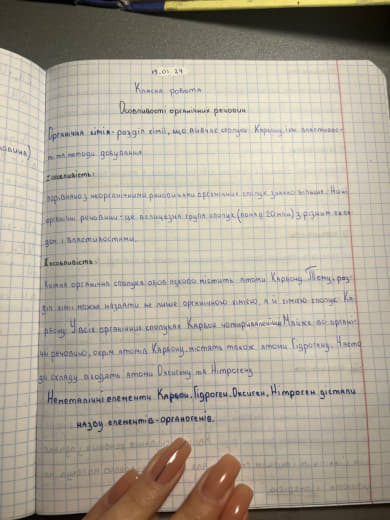 19.01.24
Класна робота
Особливості органічних речовин
Органічна хімія-розділ хімії, що вивчає сполуки Карбону, їхні властивос-
ті та методи добування
1 особливість:
порівняно з неорганічними речовинами органічних сполук значно більше. Нині
органічні речовини - це величезна група сполук (понад 20 млн) з різним скла-
дом і властивостями.
2 особливість:
кожна органічна сполука обов'язково містить атоми Карбону. Тому, роз-
діл хімії можна назвати не лише органічною хімією, а й хімією сполук Ка-
рбону. У всіх органічних сполуках Карбон чотиривалентний. Майже всі органі-
чні речовини, окрім атомів Карбону, містять також атоми Гідрогену. Часто
до складу входять атоми Оксигену та Нітрогену
Неметалічні елементи Карбон, Гідроген, Оксиген, Нітроген дістали
назву елементів-органогенів.